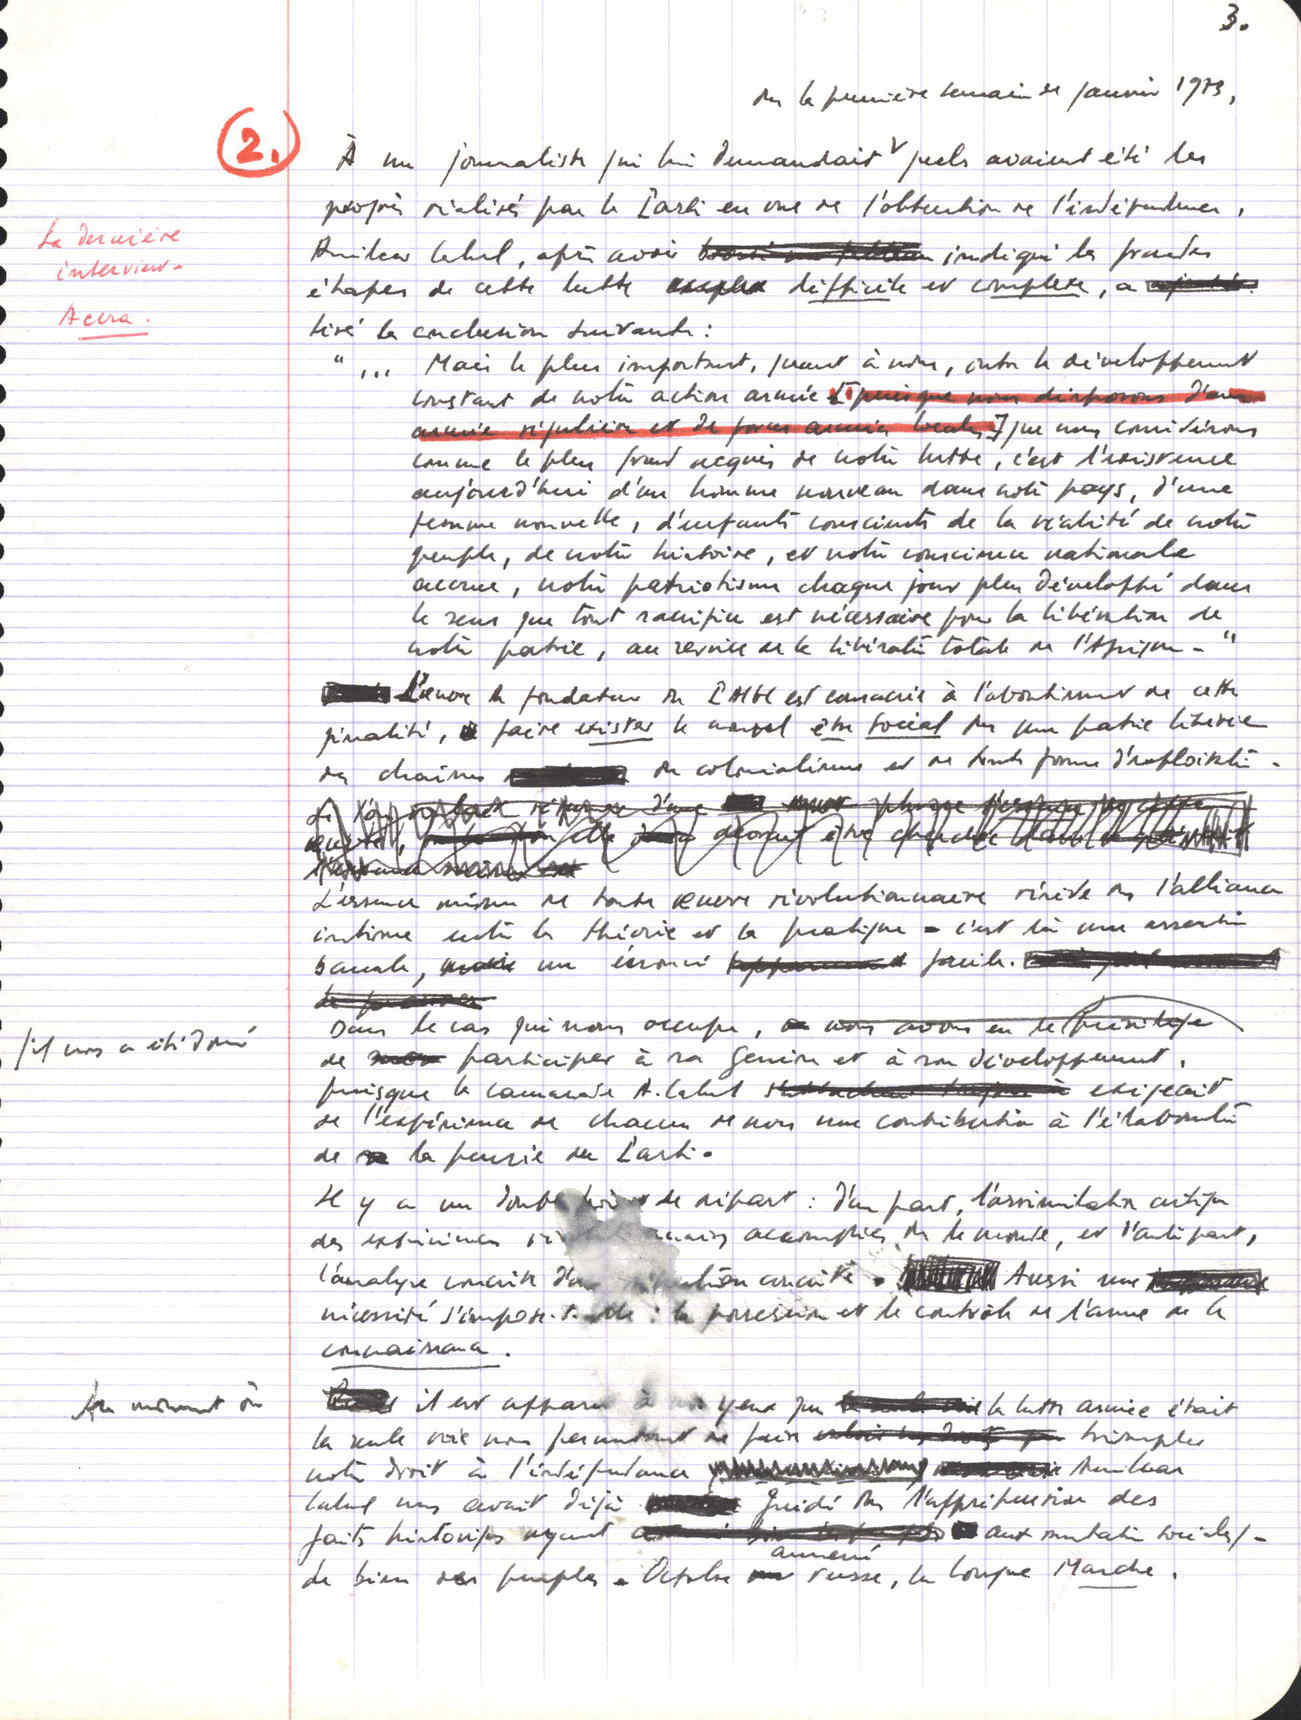 3.
la première semaine de janvier 1973,
2.
À un journaliste qui lui demandait quels avaient été les
progrès réalisés par le Parti en vue de l'obtention de l'indépendance,
La dernière
interview.
Accra.
Amilcar Cabral, après avoir indiqué les grandes
étapes de cette lutte difficile et complexe, a
tiré la conclusion suivante :
"... Mais le plus important, quant à nous, outre le développement
constant de notre action armée [puisque nous disposons d'une
armée régulière et de forces armées locales] que nous considérons
comme le plus grand acquis de notre lutte, c'est l'existence
aujourd'hui d'un homme nouveau dans notre pays, d'une
femme nouvelle, d'enfants conscients de la réalité de notre
peuple, de notre histoire, et notre conscience nationale
accrue, notre patriotisme chaque jour plus développé dans
le sens que tout sacrifice est nécessaire pour la libération de
notre patrie, au service de la libération totale de l'Afrique."
L'œuvre du fondateur du est consacrée à l'aboutissement de cette
finalité, faire exister le nouvel être social une patrie libérée
des chaînes du colonialisme et de toute forme d'exploitation.
L'essence même de toute œuvre révolutionnaire réside l'alliance
intime entre la théorie et la pratique - c'est là une assertion
banale, un énoncé facile.
Dans le cas qui nous occupe, nous avons eu le privilège
il nous a été donné
de participer à sa genèse et à son développement,
puisque le camarade A. Cabral exigeait
de l'expérience de chacun de nous une contribution à l'élaboration
de la pensée du Parti.
Il y a un double de départ : d'une part, l'assimilation critique
des expériences accomplies le monde, et d'autre part,
l'analyse concrète d'une situation concrète. Aussi une
nécessité s'impose-t-elle : la possession et le contrôle de l'arme de la
connaissance.
Au moment où
il est apparu à nos yeux que la lutte armée était
la seule voie nous permettant de faire triompher
notre droit à l'indépendance Amilcar
Cabral nous avait déjà guidé l'appréhension des
faits historiques ayant amené aux mutations sociales
de bien des peuples. Octobre russe, la Longue Marche.